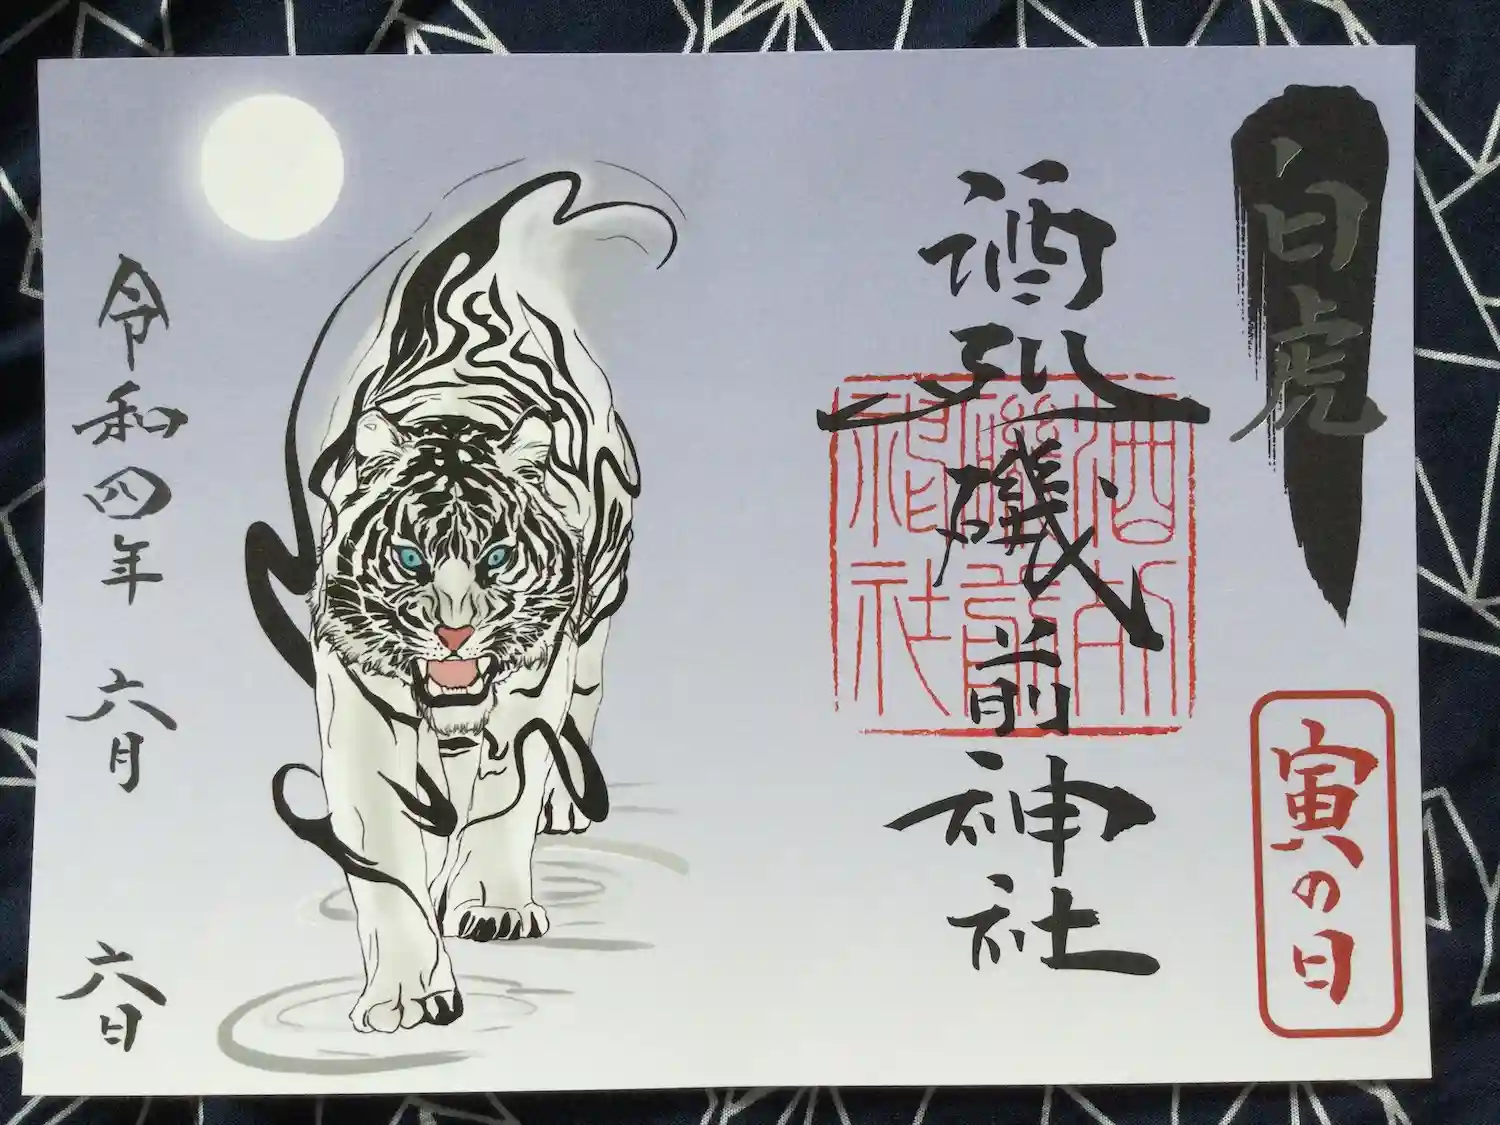 白虎
寅の日
酒列磯前神社
酒列
磯前
神社
令和四年六月六日